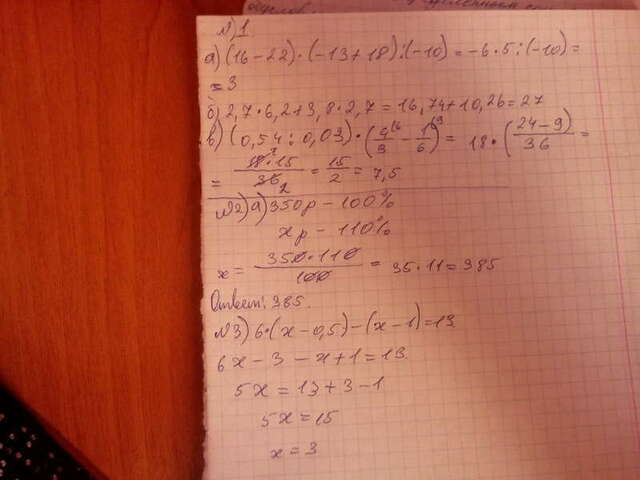 №1
а) (16-22)·(-13+18):(-10)=-6·5:(-10)=
=3
б) 2,7·6,2+3,8·2,7=16,74+10,26=27
в) (0,54:0,03)·(4/3-1/6)= 18·(24-9/36)=
= 18·15/36 2 = 15/2 = 7,5
№2) а) 350р-100%
хр-110%
х= 350·110/100 = 35·11=385
Ответ: 385.
№3) 6·(х-0,5)-(х-1)=13
6х-3-х+1=13
5х=13+3-1
5х=15
х=3